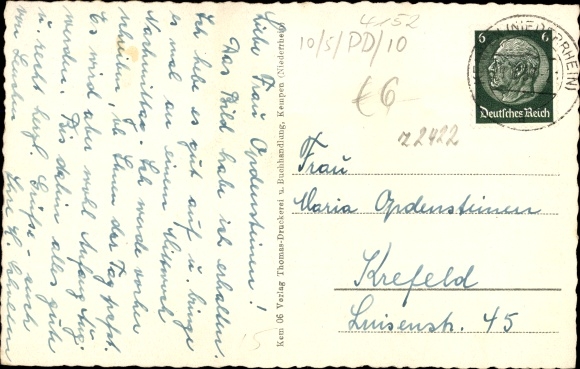 Liebe Frau Opdensteinen!
Das Bild habe ich erhalten.
Ich habe es gut auf u. bringe
es mal an einem Mittwoch
Nachmittag. Ich werde vorher
schreiben, ob Ihnen der Tag paßt.
Es wird aber wohl Anfang Aug.
werden. Bis dahin alles Gute
u. recht herzl. Grüße - auch
von
Kem 06 Verlag Thomas-Druckerei u. Buchhandlung, Kempen (Niederrhein)
4152
10/5/PD/10
€6-
z2422
(NIEDERRHEIN)
6 6
Deutsches Reich
Frau
Maria Opdensteinen
Krefeld
Luisenstr. 45
15